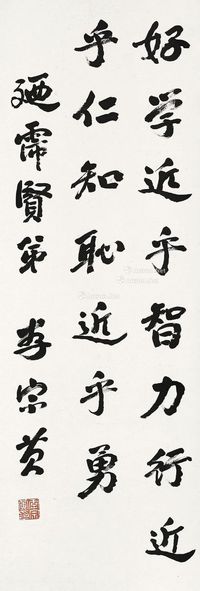 好学近乎智力行近
乎仁知耻近乎勇
廼霈賢弟 李宗黄